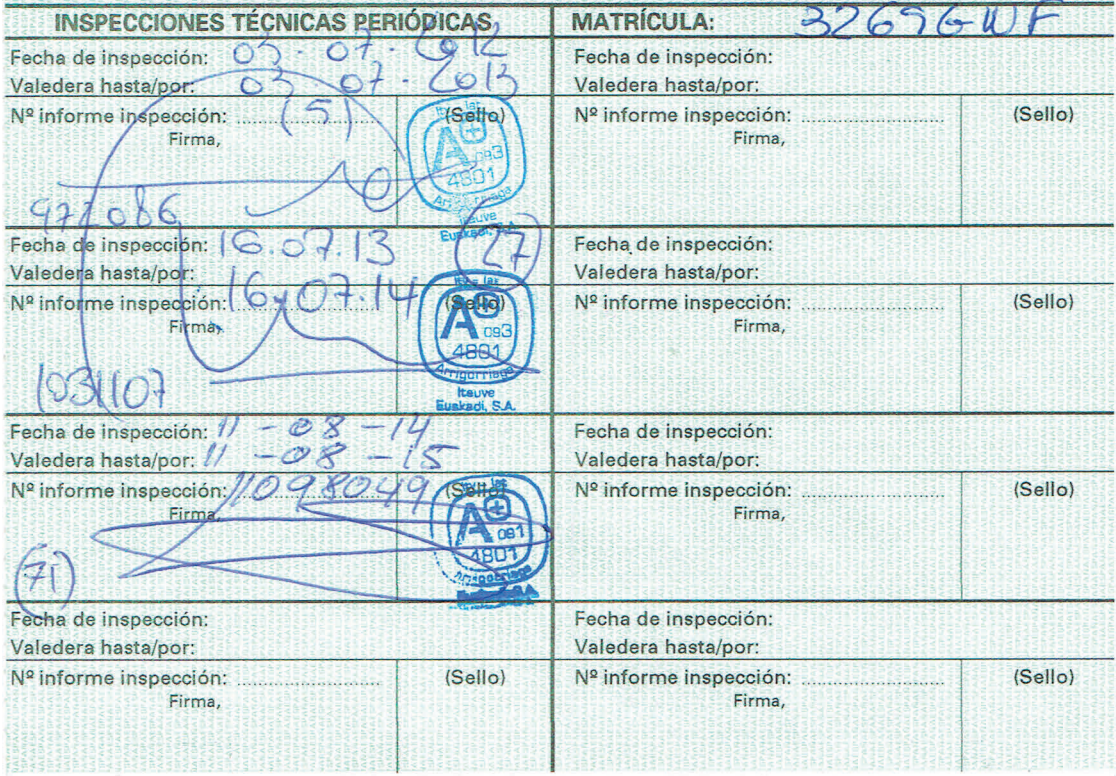 INSPECCIONES TÉCNICAS PERIÓDICAS
Fecha de inspección: 03-07-2012
Valedera hasta/por: 03 07-2013
Nº informe inspección: (5) (Sello)
Firma,
Itv - Iax
A+ 093
4801
Arrigorriaga
Iteuve
Euskadi, S.A.
Fecha de inspección: 16.07.13 (27)
Valedera hasta/por: 16.07.14
Nº informe inspección: (Sello)
Firma,
Itv - Iax
A+ 093
4801
Arrigorriaga
Iteuve
Euskadi, S.A.
1031107
Fecha de inspección: 11-08-14
Valedera hasta/por: 11-08-15
Nº informe inspección: 11098049 (Sello)
Firma,
A+ 091
4801
Arrigorriaga
(71)
Fecha de inspección:
Valedera hasta/por:
Nº informe inspección: (Sello)
Firma,
MATRÍCULA: 3269GWF
Fecha de inspección:
Valedera hasta/por:
Nº informe inspección: (Sello)
Firma,
Fecha de inspección:
Valedera hasta/por:
Nº informe inspección: (Sello)
Firma,
Fecha de inspección:
Valedera hasta/por:
Nº informe inspección: (Sello)
Firma,
Fecha de inspección:
Valedera hasta/por:
Nº informe inspección: (Sello)
Firma,